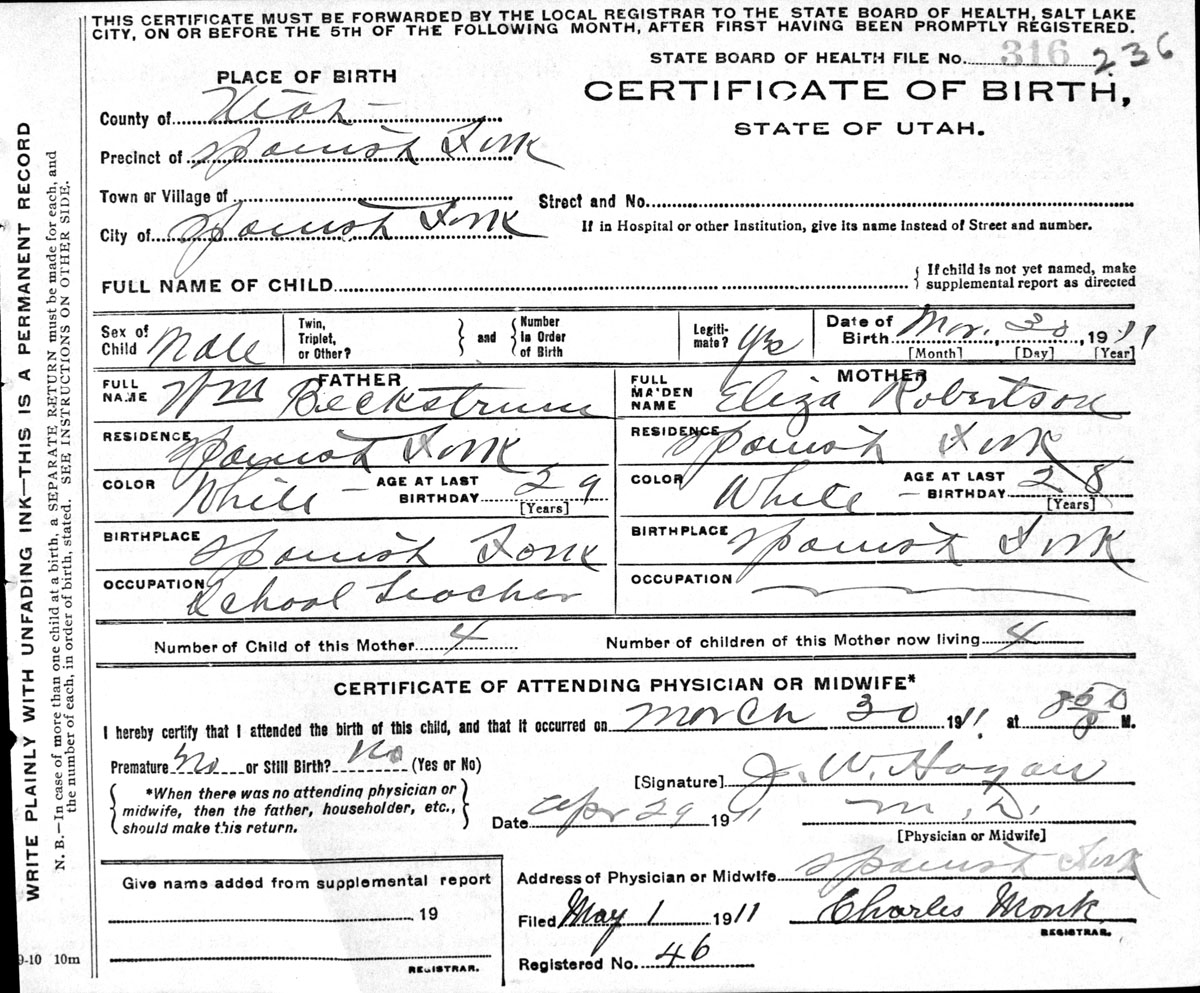 THIS CERTIFICATE MUST BE FORWARDED BY THE LOCAL REGISTRAR TO THE STATE BOARD OF HEALTH, SALT LAKE
CITY, ON OR BEFORE THE 5TH OF THE FOLLOWING MONTH, AFTER FIRST HAVING BEEN PROMPTLY REGISTERED.
STATE BOARD OF HEALTH FILE NO. 316 236
PLACE OF BIRTH
CERTIFICATE OF BIRTH,
STATE OF UTAH.
County of Utah
Precinct of Spanish Fork
Town or Village of
Street and No.
City of Spanish Fork
If in Hospital or other Institution, give its name instead of Street and number.
FULL NAME OF CHILD
If child is not yet named, make
supplemental report as directed
Sex of Child Male
Twin, Triplet, or Other?
and
Number in Order of Birth
Legiti-mate? Yes
Date of Birth Mar. 30, 1911
[Month] [Day] [Year]
FATHER
FULL NAME Wm Beckstrum
RESIDENCE Spanish Fork
COLOR White AGE AT LAST BIRTHDAY 29
[Years]
BIRTHPLACE Spanish Fork
OCCUPATION School Teacher
MOTHER
FULL MAIDEN NAME Eliza Robertson
RESIDENCE Spanish Fork
COLOR White AGE AT LAST BIRTHDAY 28
[Years]
BIRTHPLACE Spanish Fork
OCCUPATION
Number of Child of this Mother 4 Number of children of this Mother now living 4
CERTIFICATE OF ATTENDING PHYSICIAN OR MIDWIFE*
I hereby certify that I attended the birth of this child, and that it occurred on March 30 1911 at 8 50 M.
Premature No or Still Birth? No (Yes or No)
*When there was no attending physician or
midwife, then the father, householder, etc.,
should make this return.
[Signature] J. W. Hagan
Date Apr 29 1911 M. D.
[Physician or Midwife]
Address of Physician or Midwife Spanish Fork
Give name added from supplemental report
19
REGISTRAR.
Filed May 1 1911 Charles Monk
REGISTRAR.
Registered No. 46
9-10 10m
WRITE PLAINLY WITH UNFADING INK—THIS IS A PERMANENT RECORD
N. B.—In case of more than one child at a birth, a SEPARATE RETURN must be made for each, and
the number of each, in order of birth, stated. SEE INSTRUCTIONS ON OTHER SIDE.